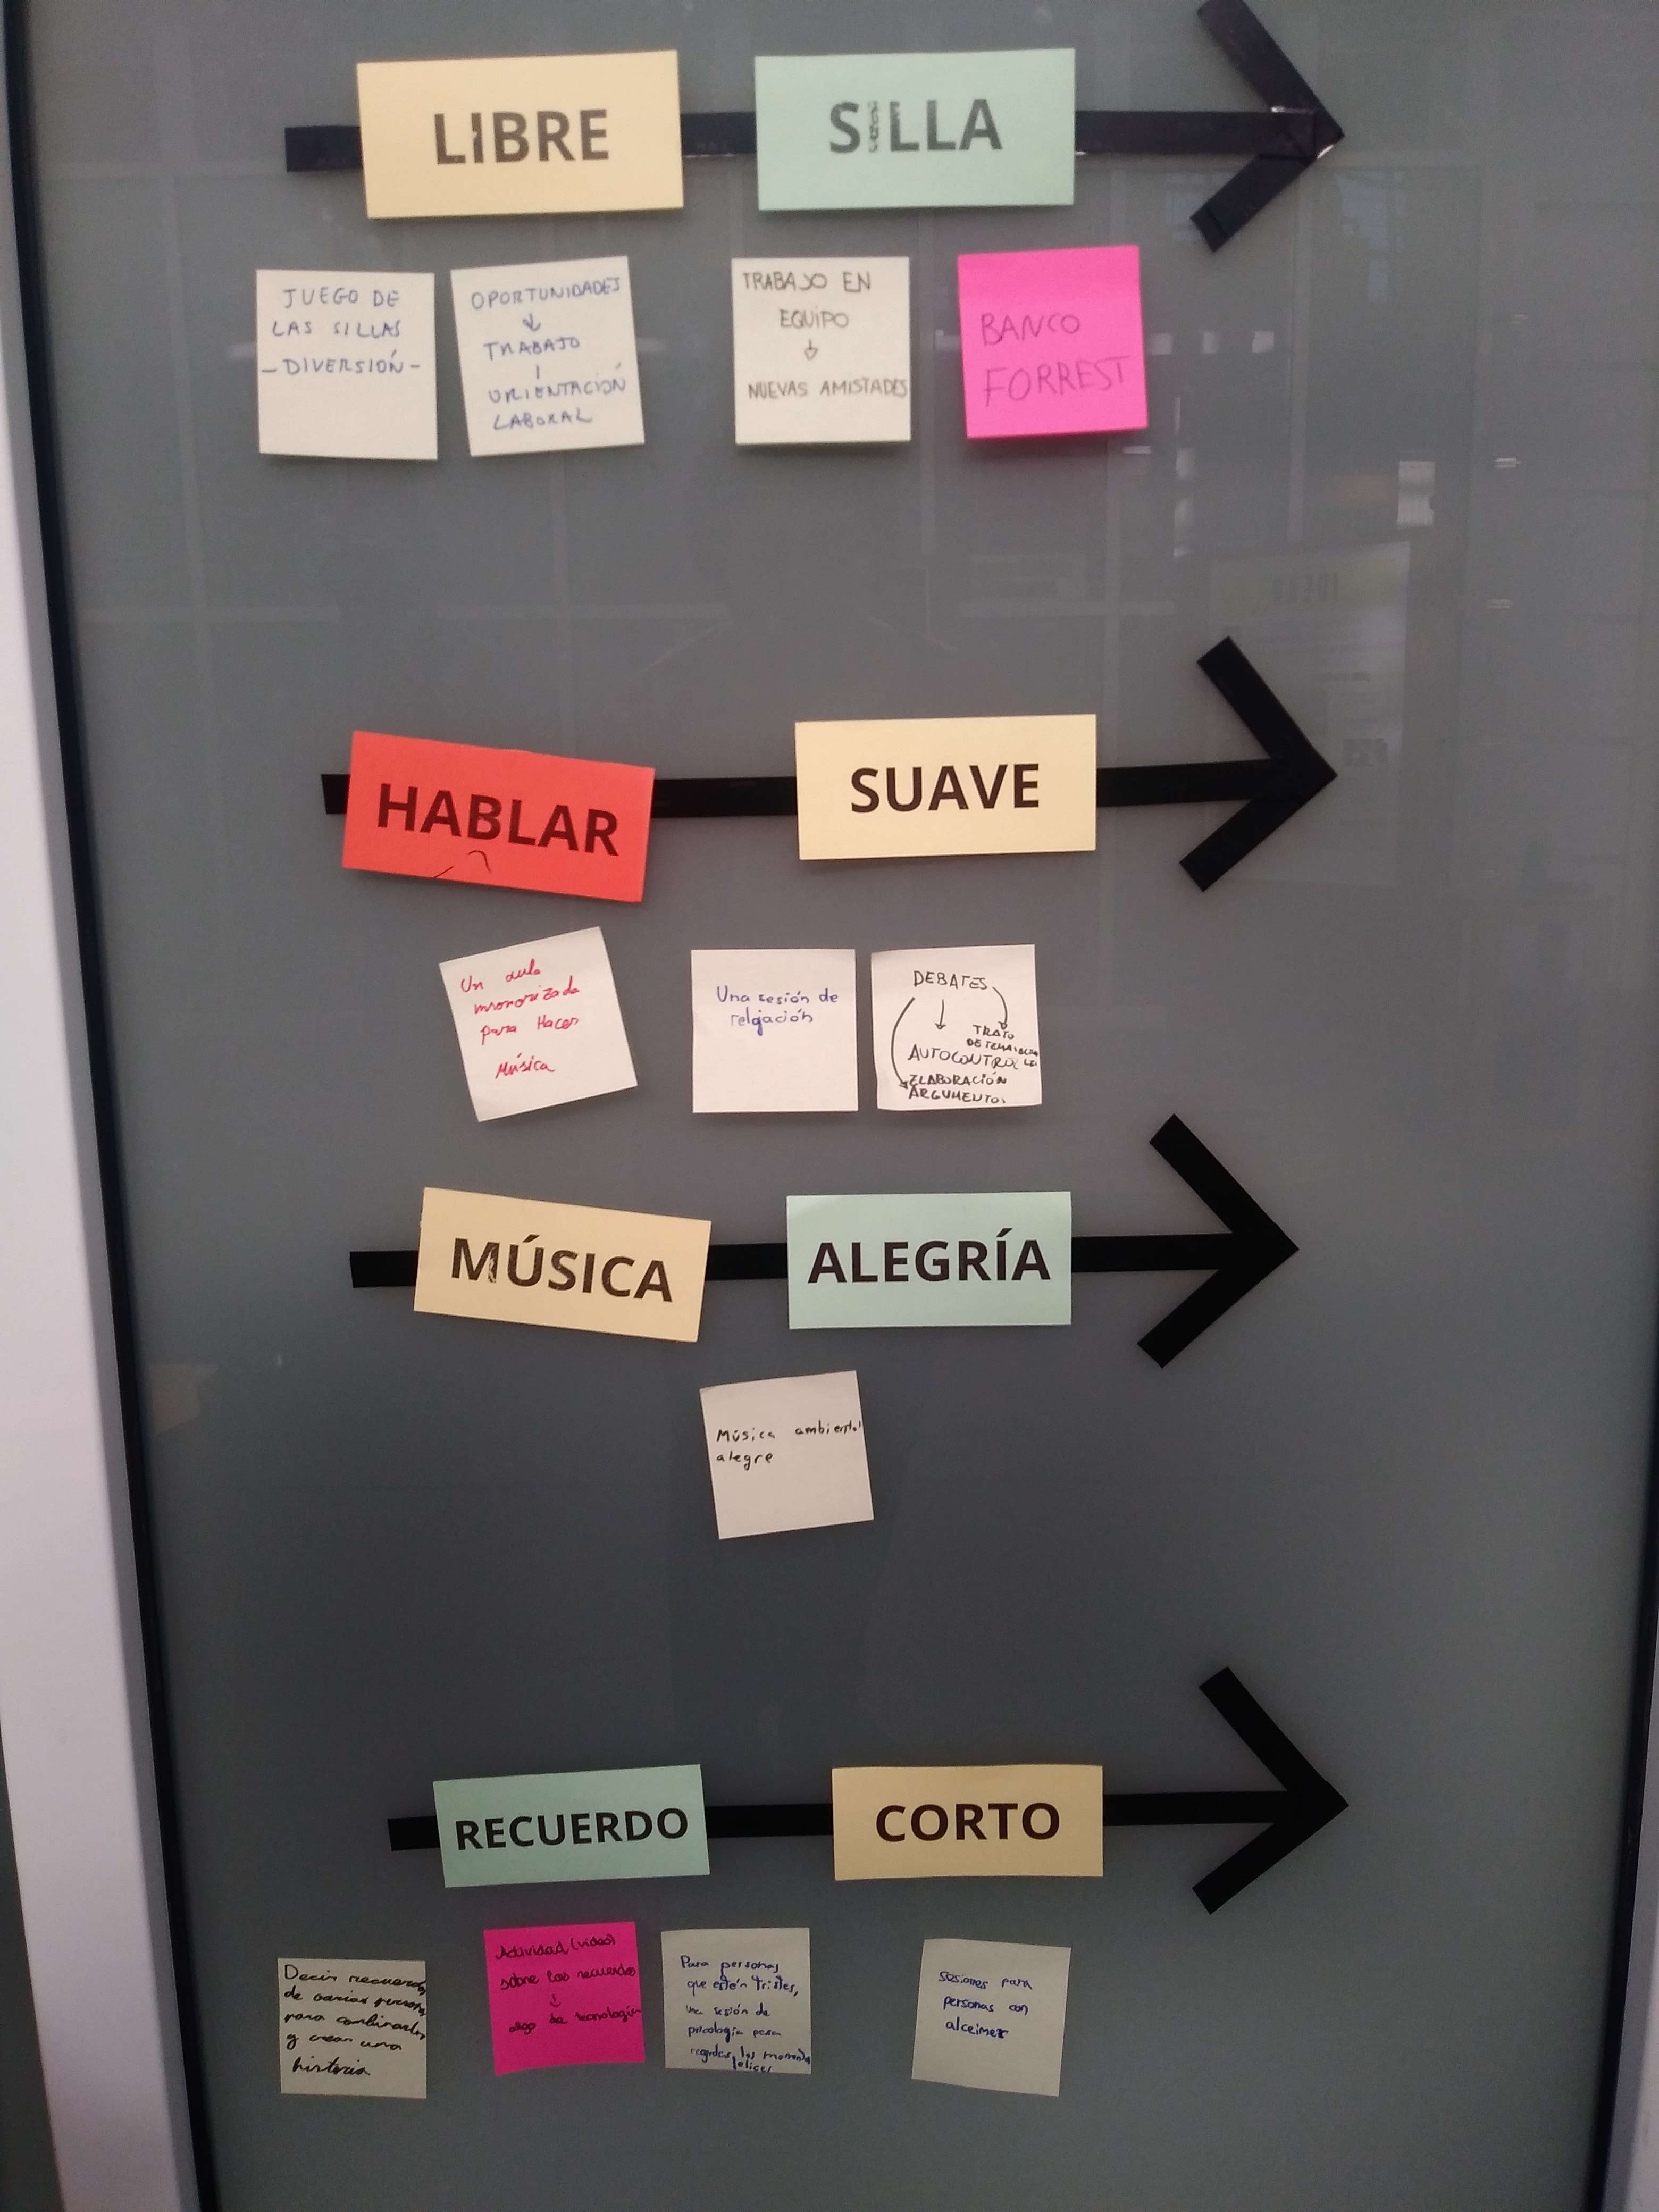 LIBRE
SILLA
JUEGO DE
LAS SILLAS
- DIVERSIÓN -
OPORTUNIDADES
↓
TRABAJO
|
ORIENTACIÓN
LABORAL
TRABAJO EN
EQUIPO
↓
NUEVAS AMISTADES
BANCO
FORREST
HABLAR
SUAVE
Un aula
insonorizada
para Hacer
Música
Una sesión de
relajación
DEBATES
TRATO
DE TEMAS
AUTOCONTROL
ELABORACIÓN
ARGUMENTOS
MÚSICA
ALEGRÍA
Música ambiental
alegre
RECUERDO
CORTO
Decir recuerdos
de varias personas
para combinarlos
y crear una
historia
Actividad (video)
sobre los recuerdos
↓
algo de tecnología
Para personas
que estén tristes,
una sesión de
psicología para
recordar los momentos
felices
Sesiones para
personas con
alceimer